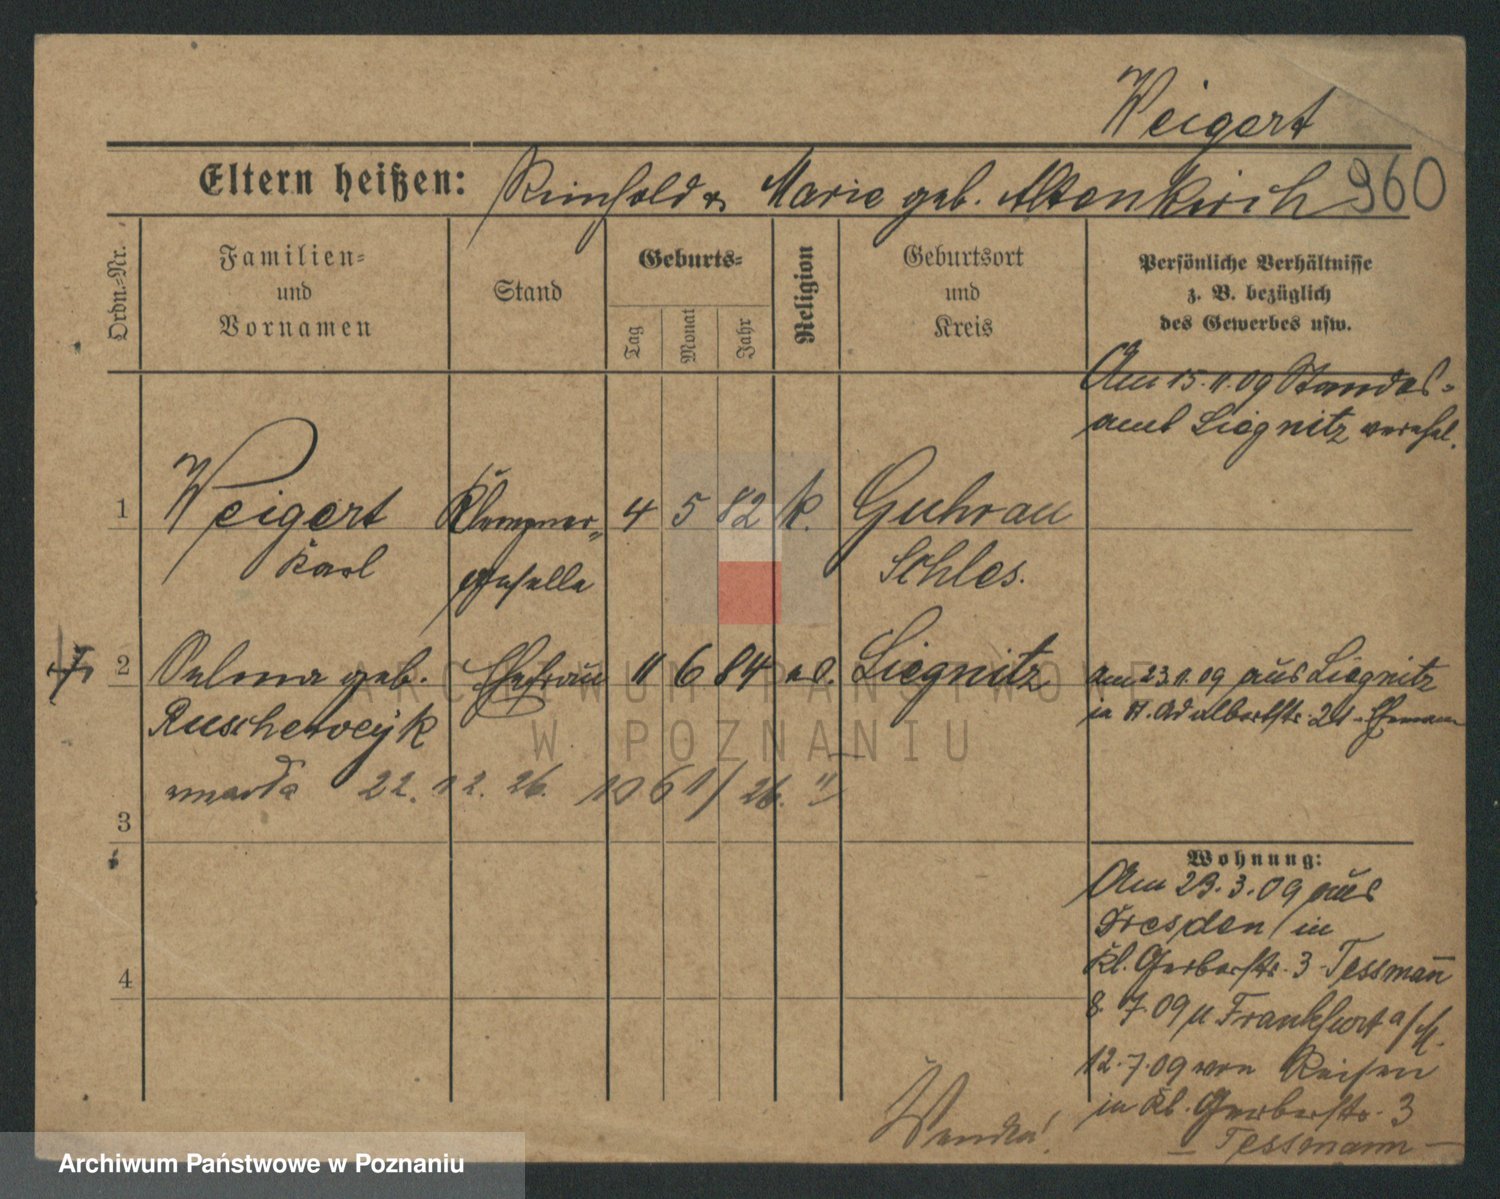 Weigert
Eltern heißen: Reinhold & Marie geb. Altenkirch 960
Ordn.-Nr.
Familien-
und
Vornamen
Stand
Geburts-
Tag
Monat
Jahr
Religion
Geburtsort
und
Kreis
Persönliche Verhältnisse
z. B. bezüglich
des Gewerbes usw.
Am 15.11.09 Standes-
amt Liegnitz verehel.
1 Weigert Klempner- 4 5 82 k. Guhrau
Karl geselle Schles.
2 Selma geb. Ehefrau 11 6 84 ev. Liegnitz
Ruscheweyk
am 23.11.09 aus Liegnitz
in St. Adalbertstr. 21 - Ehemann
zmarła 22.12.26. 1061/26. II
3
Wohnung:
Am 23.3.09 aus
Dresden / in
Kl. Gerberstr. 3 - Tessmann
8.7.09 n Frankfurt a/M.
12.7.09 von Reisen
in Kl. Gerberstr. 3
- Tessmann -
4
ARCHIWUM PAŃSTWOWE
W POZNANIU
Archiwum Państwowe w Poznaniu